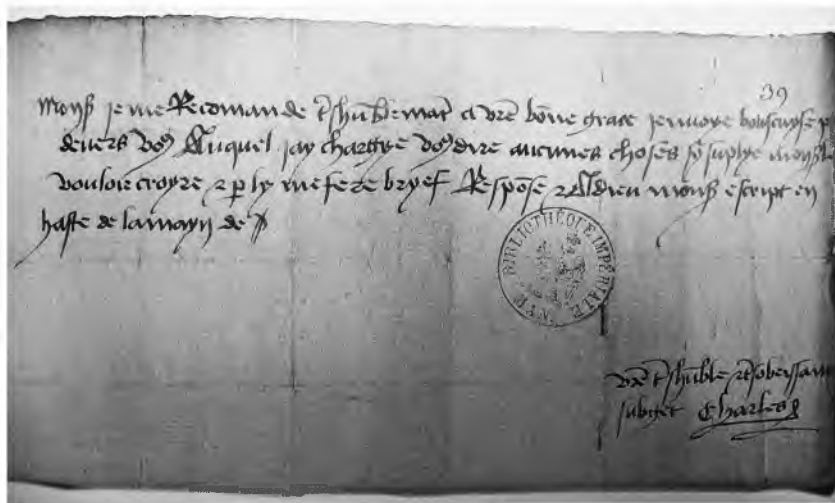 39
Monsr je me Recomande tshublemat a vre bone grace jenvoye
devers vos Auquel jay chargye vos dire aucunes choses sy suplye monsr
vouloir croyre & p ly me fere bryef Respose & Adieu monsr escript en
haste de la mayn de
BIBLIOTHÈQUE IMPÉRIALE MAN.
vre tshuble & tsobeissant
subget Charles